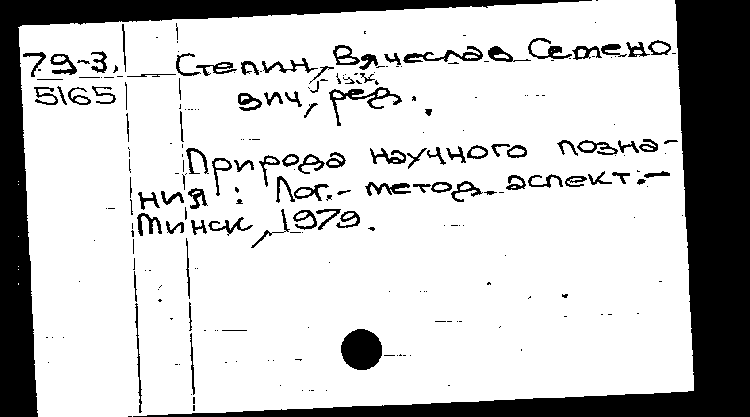 79-3. Степин, Вячеслав Семено
5165 вич, ред.
Природа научного позна-
ния : Лог.- метод. аспект.-
Минск, 1979.